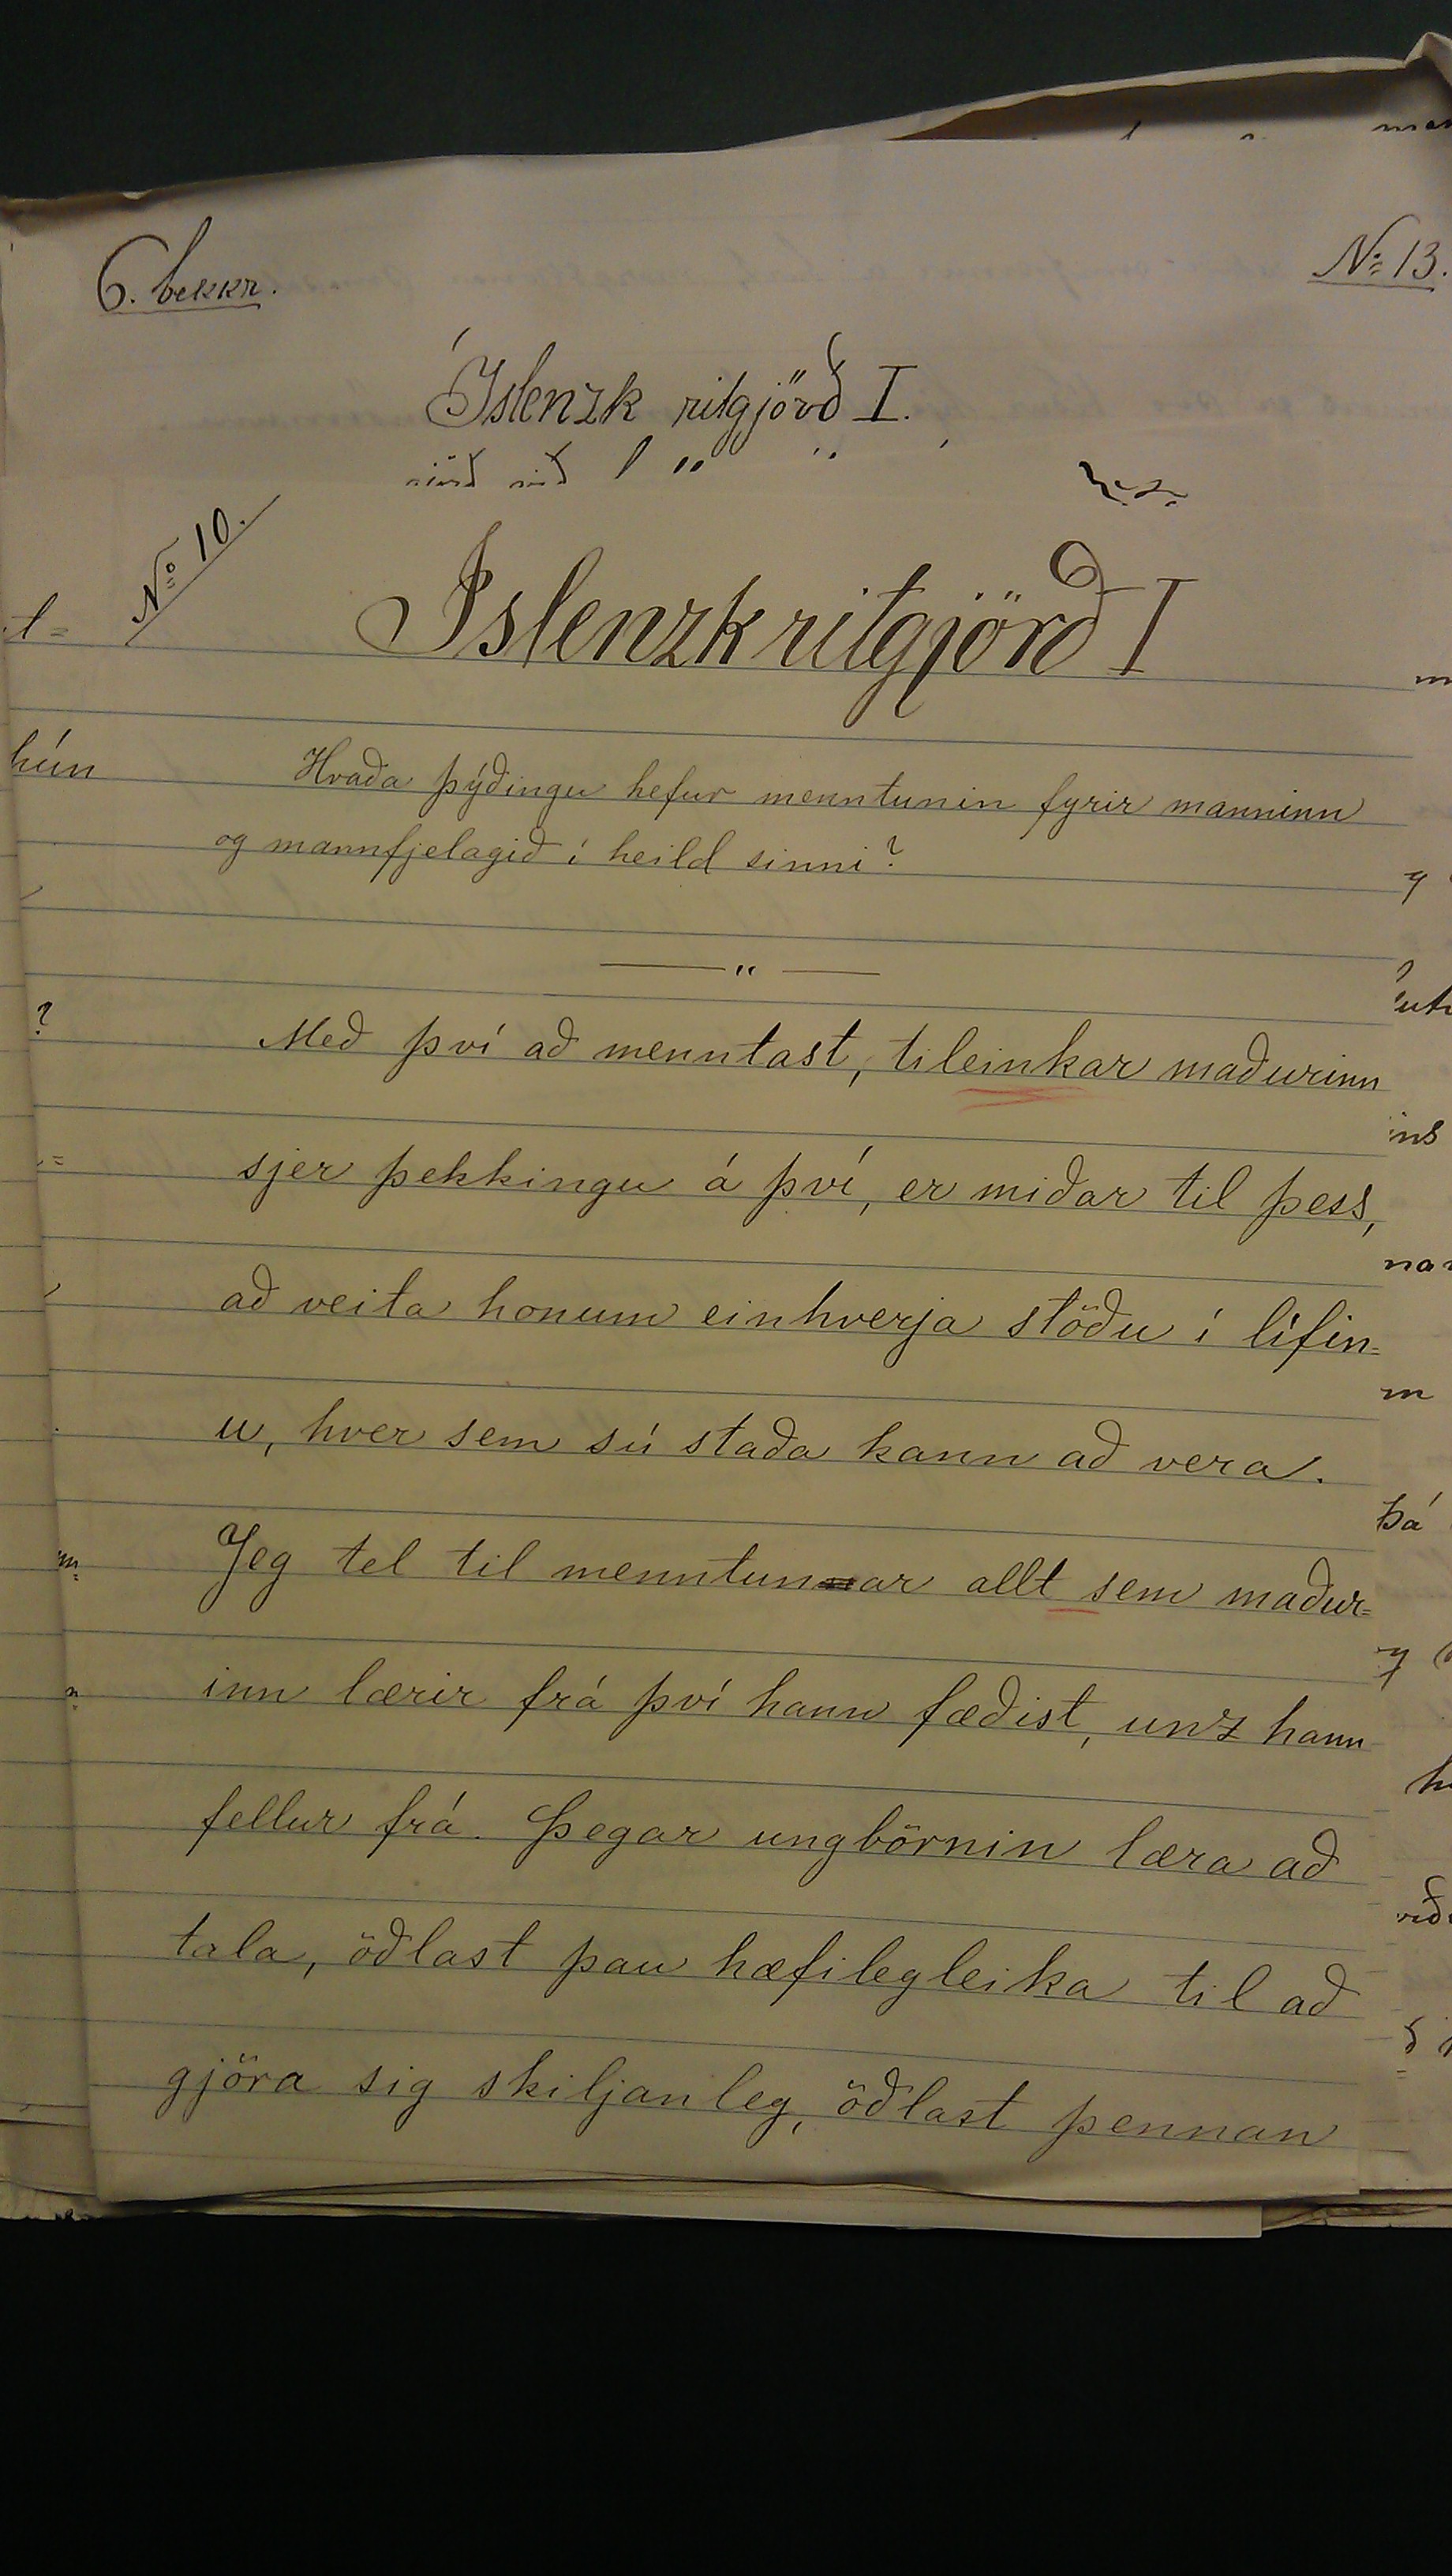 6. bekkr.
No 13.
Íslenzk ritgjörð I.
No 10.
Íslenzk ritgjörð I
hún
Hvaða þýðingu hefur menntunin fyrir manninn
og mannfjelagið í heild sinni?
— " —
Með því að menntast, tileinkar maðurinn
sjer þekkingu á því, er miðar til þess,
að veita honum einhverja stöðu í lífin=
u, hver sem sú staða kann að vera.
Þá
Jeg tel til menntunar allt sem maður=
inn lærir frá því hann fæðist, unz hann
fellur frá. Þegar ungbörnin læra að
tala, öðlast þau hæfilegleika til að
gjöra sig skiljanleg, öðlast þennan